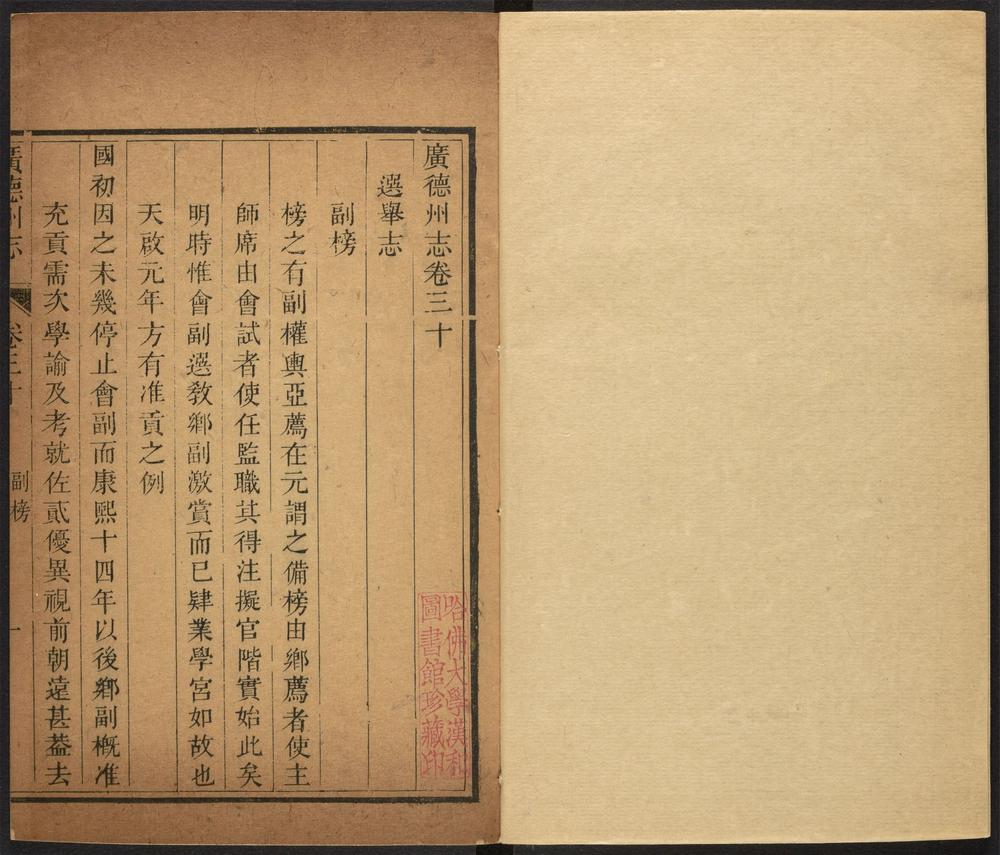 廣德州志卷三十
選舉志
副榜
榜之有副權輿亞薦在元謂之備榜由鄉薦者使主
師席由會試者使任監職其得注擬官階實始此矣
明時惟會副選教鄉副激賞而已肄業學宮如故也
天啟元年方有准貢之例
國初因之未幾停止會副而康熙十四年以後鄉副概准
充貢需次學諭及考就佐貳優異視前朝遠甚葢去
廣德州志
卷三十
副榜
一
哈佛大學漢和
圖書館珍藏印